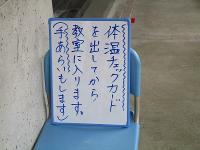 体温チェックカード
を出してから
教室に入ります。
(手あらいもします)